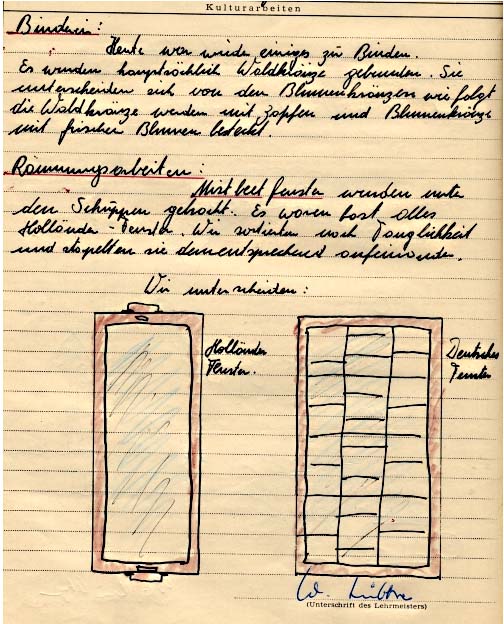 Kulturarbeiten
Binderei:
Heute war wieder einiges zu Binden.
Es wurden hauptsächlich Waldkränze gebunden. Sie
unterscheiden sich von den Blumenkränzen wie folgt
die Waldkränze werden mit Zapfen und Blumenkränze
mit frischen Blumen besteckt.
Räumungsarbeiten:
Mistbeetfenster wurden unter
den Schuppen gebracht. Es waren fast alles
Holländer-Fenster. Wir sortierten nach Tauglichkeit
und stapelten sie dementsprechend aufeinander.
Wir unterscheiden:
Holländer
Fenster.
Deutsches
Fenster
W.
(Unterschrift des Lehrmeisters)